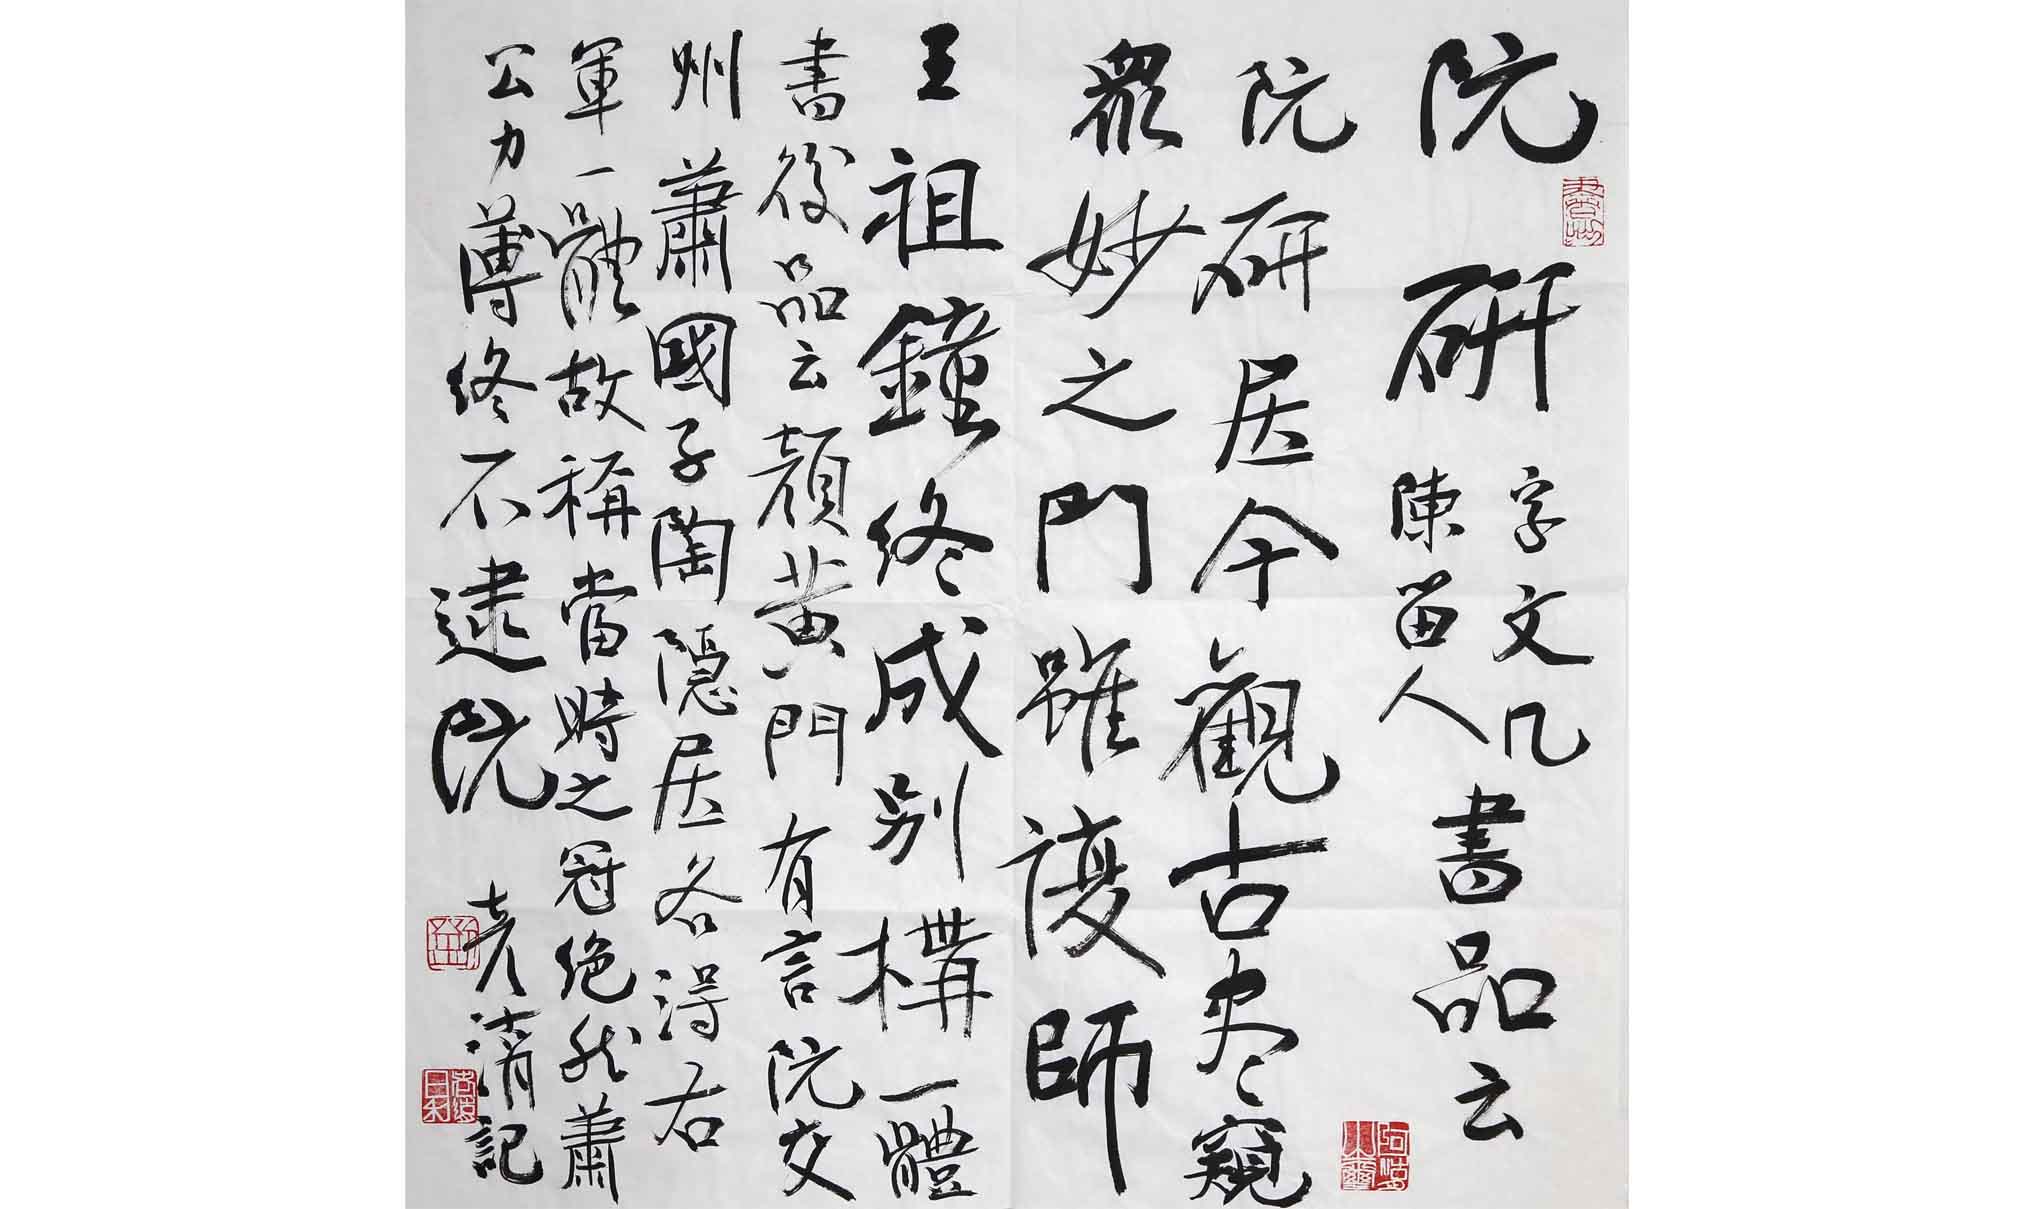 阮研
字文几
陳留人
書品云
阮研居今觀古尽窺
衆妙之門雖復師
王祖鐘終成别構一體
書後品云顏黃門有言阮交
州蕭國子陶隱居各得右
軍一體故稱當時之冠絕然蕭
公力薄終不逮阮
記